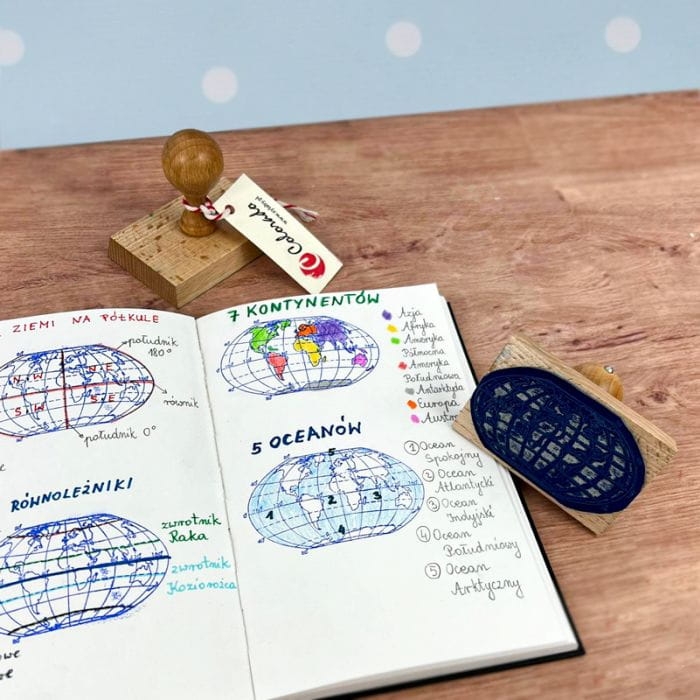 ZIEMI NA PÓŁKULE
południk
180°
N W
N E
S W
S E
równik
południk 0°
RÓWNOLEŻNIKI
zwrotnik
Raka
zwrotnik
Koziorożca
7 KONTYNENTÓW
Azja
Afryka
Ameryka
Północna
Ameryka
Południowa
Antarktyda
Europa
Austr
5 OCEANÓW
5
1
2
3
4
1 Ocean
Spokojny
2 Ocean
Atlantycki
3 Ocean
Indyjski
4 Ocean
Południowy
5 Ocean
Arktyczny
Colorado